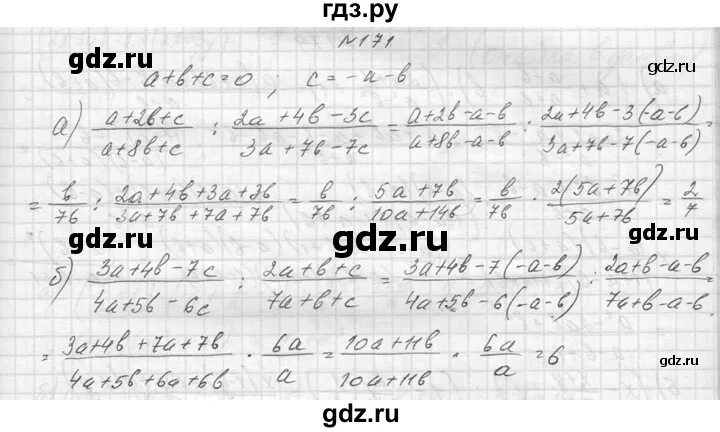 гдз.ру
№171
gdz.ru gdz.ru
a+b+c=0 ; c=-a-b
gdz.ru
а) (a+2b+c)/(a+8b+c) : (2a+4b-3c)/(3a+7b-7c) = (a+2b-a-b)/(a+8b-a-b) : (2a+4b-3(-a-b))/(3a+7b-7(-a-b)) =
= b/7b : (2a+4b+3a+3b)/(3a+7b+7a+7b) = b/7b : (5a+7b)/(10a+14b) = b/7b · 2(5a+7b)/(5a+7b) = 2/7
gdz.ru gdz.ru gdz.ru
б) (3a+4b-7c)/(4a+5b-6c) : (2a+b+c)/(7a+b+c) = (3a+4b-7(-a-b))/(4a+5b-6(-a-b)) : (2a+b-a-b)/(7a+b-a-b)
= (3a+4b+7a+7b)/(4a+5b+6a+6b) · 6a/a = (10a+11b)/(10a+11b) · 6a/a = 6
gdz.ru
gdz.ru gdz.ru
gdz.ru